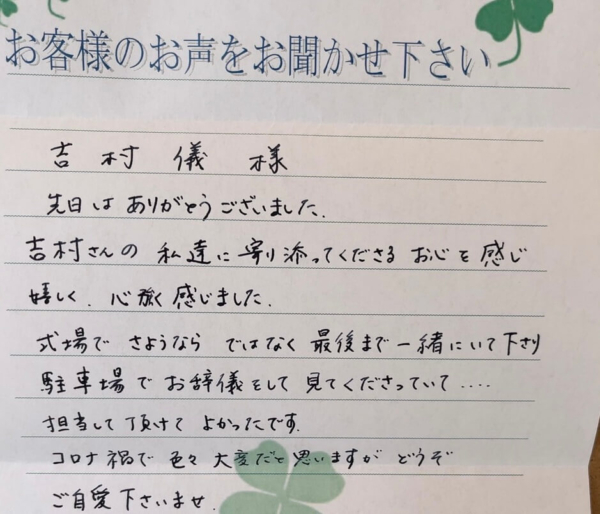 お客様のお声をお聞かせ下さい
吉村 儀 様
先日は ありがとうございました.
吉村さんの 私達に寄り添ってくださる お心を 感じ
嬉しく、心強く感じました.
式場で さようなら ではなく 最後まで一緒にいて下さり
駐車場で お辞儀をして 見てくださっていて....
担当して頂けて よかったです.
コロナ禍で 色々大変だと思いますが どうぞ
ご自愛下さいませ.